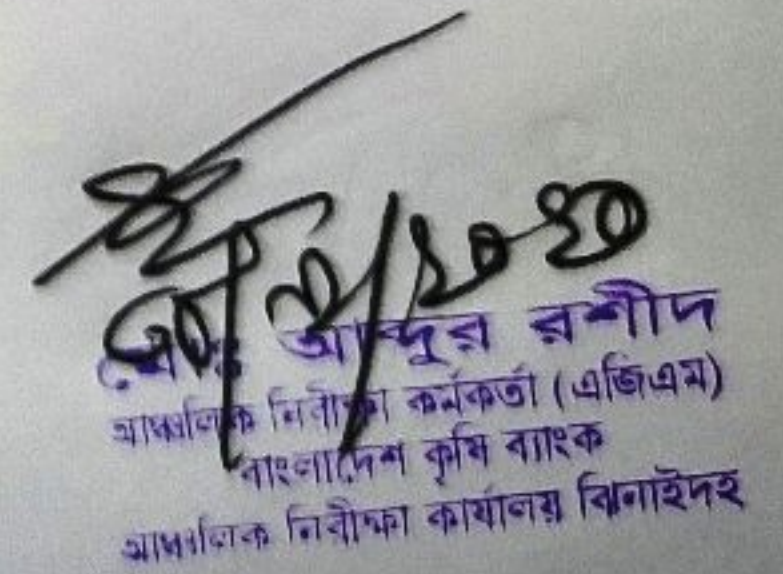 মোঃ আব্দুর রশীদ
আঞ্চলিক নিরীক্ষা কর্মকর্তা (এজিএম)
বাংলাদেশ কৃষি ব্যাংক
আঞ্চলিক নিরীক্ষা কার্যালয় ঝিনাইদহ